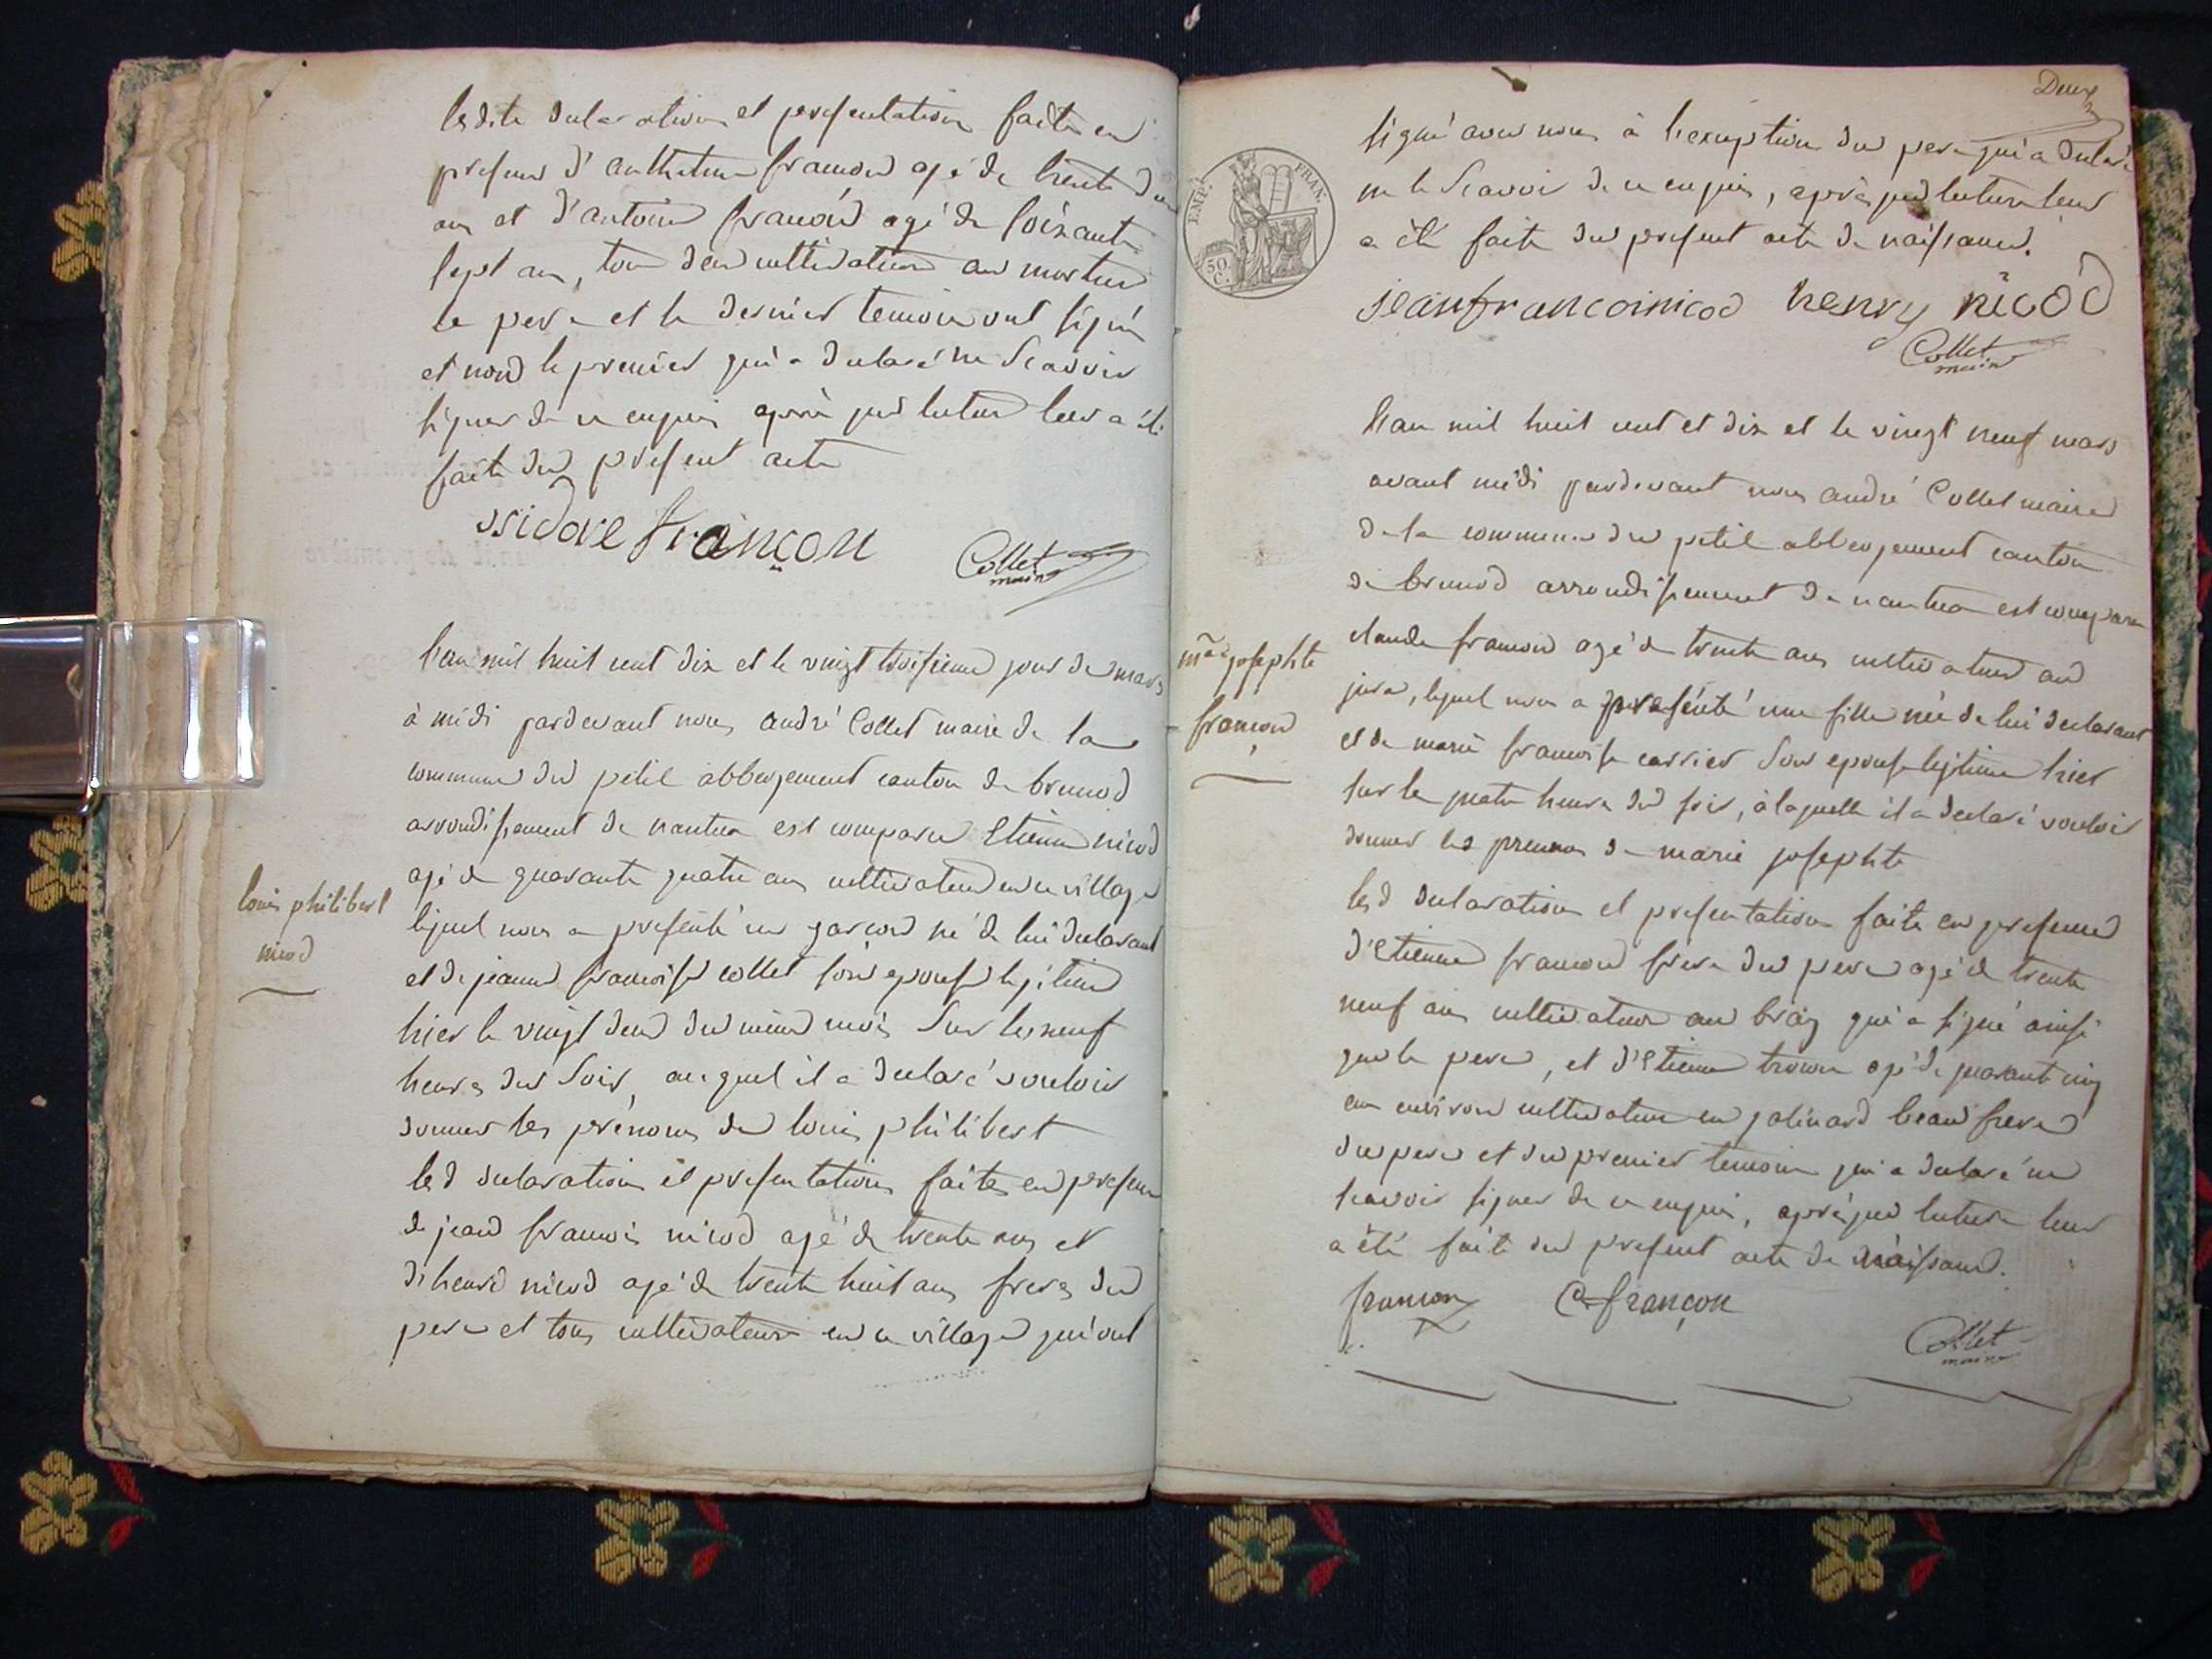 lesdite declaration et presentation faite en
presence d'anthelme françon agé de trente deux
ans et d'antoine françon agé de soixante
sept ans, tous deux cultivateurs au
le pere et le dernier temoin ont signé
et non le premier qui a declaré ne scavoir
signer de ce enquis après que lecture leur a été
faite du present acte
françon
Collet
maire
l'an mil huit cent dix et le vingt troisieme jour de mars
à midi pardevant nous andré Collet maire de la
commune du petit abbergement canton de brenod
arrondissement de nantua est comparu Etienne nicod
agé de quarante quatre ans cultivateur en ce village
lequel nous a presenté un garçon né de lui declarant
et de jeanne françoise collet son epouse legitime
hier le vingt deux du même mois sur les neuf
heures du soir, auquel il a declaré vouloir
donner les prénoms de louis philibert
lesd declaration et presentation faites en presence
de jean françois nicod agé de trente ans et
d'henri nicod agé de trente huit ans freres du
pere et tous cultivateurs en ce village qui ont
louis philibert
nicod
Deux
EMP. FRAN.
50 C.
signé avec nous à l'exeception du pere qui a declaré
ne le scavoir de ce enquis, après que lecture leur
a été faite du present acte de naissance.
jeanfrancoinicod henry nicod
Collet
maire
l'an mil huit cent et dix et le vingt neuf mars
avant midi pardevant nous andré Collet maire
de la commune du petit abbergement canton
de brenod arrondissement de nantua est comparu
claude françon agé de trente ans cultivateur au
jura, lequel nous a presénté une fille née de lui declarant
et de marie françoise carrier son epouse legitime hier
sur le quatre heure du soir, à laquelle il a declaré vouloir
donner les prenoms de marie josephte
lesd declaration et presentation faite en presence
d'Etienne françon frere du pere agé de trente
neuf ans cultivateur au qui a signé ainsi
que le pere, et d'Etienne agé de quarante cinq
ans environ cultivateur en beau frere
du pere et du premier temoin qui a declaré ne
scavoir signer de ce enquis, après que lecture leur
a été faite du present acte de naissance.
françon C françon
Collet
maire
m^a josephte
françon